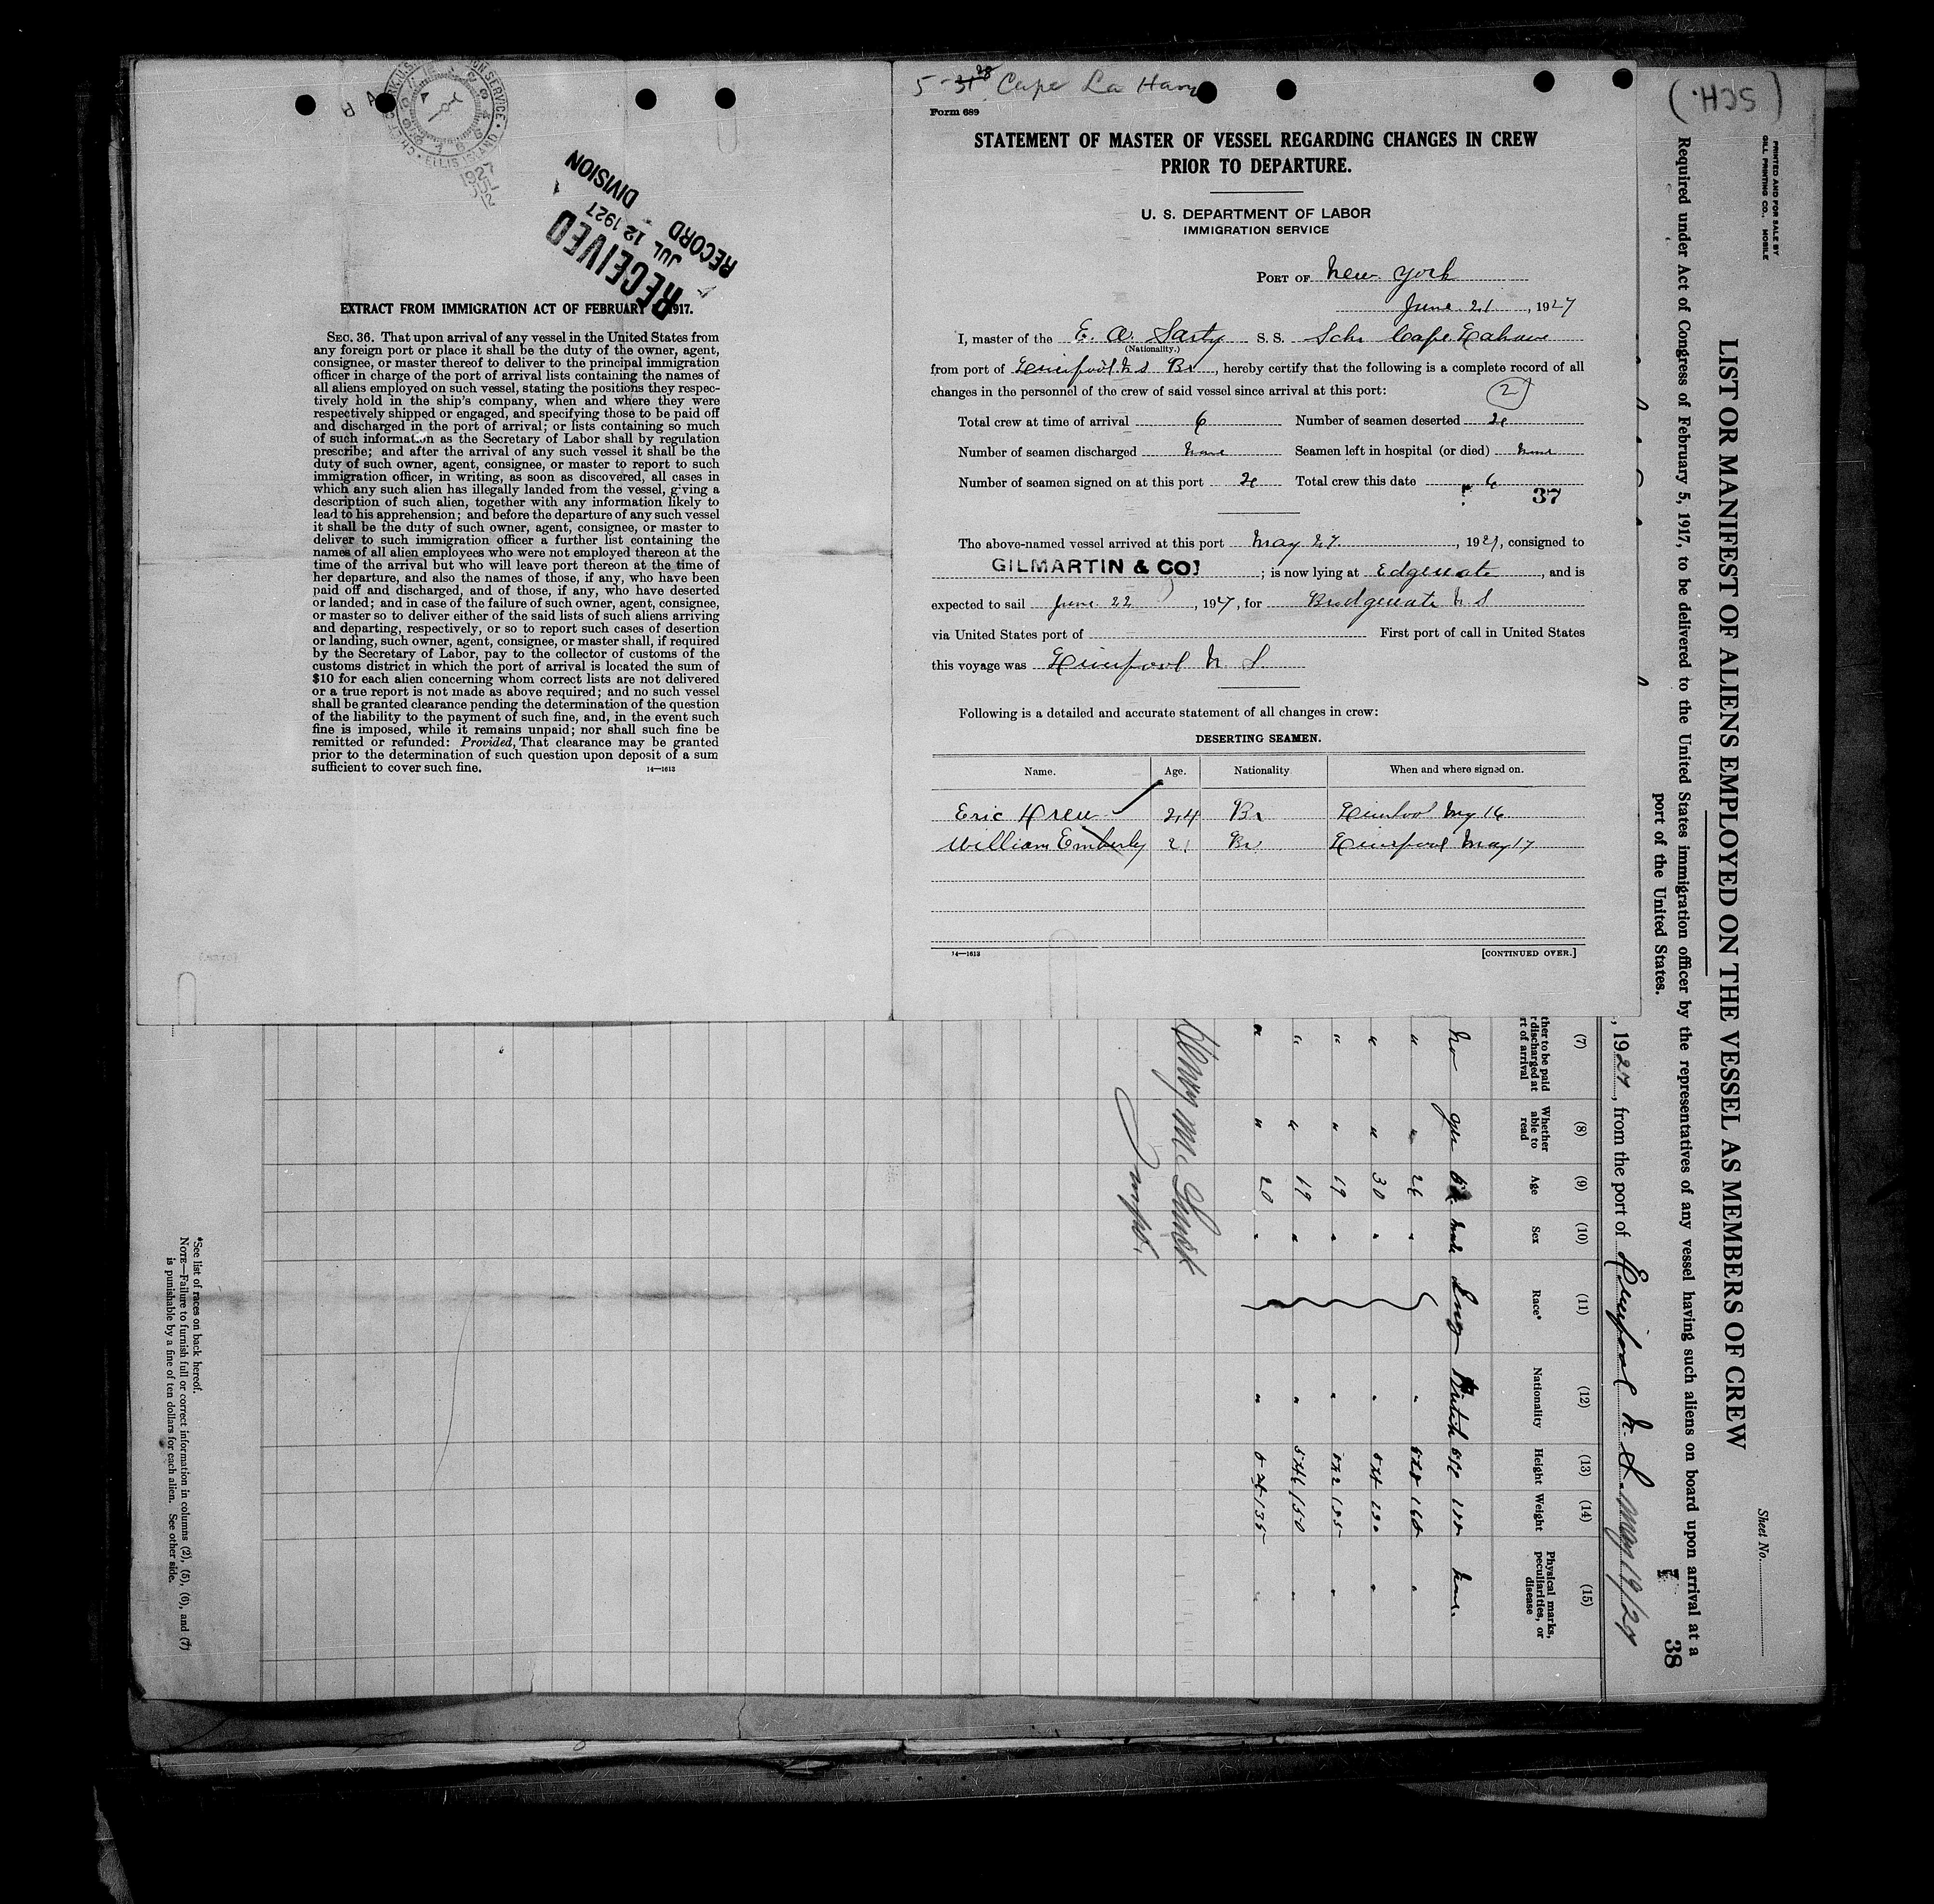 5-31 28 Cape La Have
Form 689
STATEMENT OF MASTER OF VESSEL REGARDING CHANGES IN CREW
PRIOR TO DEPARTURE.
U. S. DEPARTMENT OF LABOR
IMMIGRATION SERVICE
PORT OF New York
June 21, 1927
I, master of the E. A. Sarty S. S. Schr Cape Lahave
(Nationality.)
from port of Liverpool N S Br, hereby certify that the following is a complete record of all
changes in the personnel of the crew of said vessel since arrival at this port:
2
Total crew at time of arrival 6 Number of seamen deserted 2
Number of seamen discharged None Seamen left in hospital (or died) None
Number of seamen signed on at this port 2 Total crew this date 6
37
The above-named vessel arrived at this port May 27, 1927, consigned to
GILMARTIN & CO; is now lying at Edgewater, and is
expected to sail June 22, 1927, for Bridgewater N S
via United States port of First port of call in United States
this voyage was Liverpool N. S.
Following is a detailed and accurate statement of all changes in crew:
DESERTING SEAMEN.
Name. Age. Nationality When and where signed on.
Eric Drew 24 Br May 16
William Emberly 21 Br Liverpool May 17
14—1613 [CONTINUED OVER.]
ELLIS ISLAND
1927
RECEIVED
JUL 12 1927
RECORD
DIVISION
EXTRACT FROM IMMIGRATION ACT OF FEBRUARY 1917.
SEC. 36. That upon arrival of any vessel in the United States from
any foreign port or place it shall be the duty of the owner, agent,
consignee, or master thereof to deliver to the principal immigration
officer in charge of the port of arrival lists containing the names of
all aliens employed on such vessel, stating the positions they respec-
tively hold in the ship's company, when and where they were
respectively shipped or engaged, and specifying those to be paid off
and discharged in the port of arrival; or lists containing so much
of such information as the Secretary of Labor shall by regulation
prescribe; and after the arrival of any such vessel it shall be the
duty of such owner, agent, consignee, or master to report to such
immigration officer, in writing, as soon as discovered, all cases in
which any such alien has illegally landed from the vessel, giving a
description of such alien, together with any information likely to
lead to his apprehension; and before the departure of any such vessel
it shall be the duty of such owner, agent, consignee, or master to
deliver to such immigration officer a further list containing the
names of all alien employees who were not employed thereon at the
time of the arrival but who will leave port thereon at the time of
her departure, and also the names of those, if any, who have been
paid off and discharged, and of those, if any, who have deserted
or landed; and in case of the failure of such owner, agent, consignee,
or master so to deliver either of the said lists of such aliens arriving
and departing, respectively, or so to report such cases of desertion
or landing, such owner, agent, consignee, or master shall, if required
by the Secretary of Labor, pay to the collector of customs of the
customs district in which the port of arrival is located the sum of
$10 for each alien concerning whom correct lists are not delivered
or a true report is not made as above required; and no such vessel
shall be granted clearance pending the determination of the question
of the liability to the payment of such fine, and, in the event such
fine is imposed, while it remains unpaid; nor shall such fine be
remitted or refunded: Provided, That clearance may be granted
prior to the determination of such question upon deposit of a sum
sufficient to cover such fine.
14—1613
(SCH.)
PRINTED AND FOR SALE BY
GILL PRINTING CO., MOBILE
Sheet No.
LIST OR MANIFEST OF ALIENS EMPLOYED ON THE VESSEL AS MEMBERS OF CREW
Required under Act of Congress of February 5, 1917, to be delivered to the United States immigration officer by the representatives of any vessel having such aliens on board upon arrival at a
port of the United States.
38
, 1927, from the port of Liverpool N. S. May 19/27
(7) (8) (9) (10) (11) (12) (13) (14) (15)
Whether able to read Age Sex Race* Nationality Height Weight Physical marks, peculiarities, or disease
No yes male Eng British none
" " 26 " " 5x8 160 "
" " 30 " " 190 "
" " 19 " " "
" " 19 " " 150 "
" " 20 " " 135
*See list of races on back hereof.
NOTE—Failure to furnish full or correct information in columns (2), (5), (6), and (7)
is punishable by a fine of ten dollars for each alien. See other side.